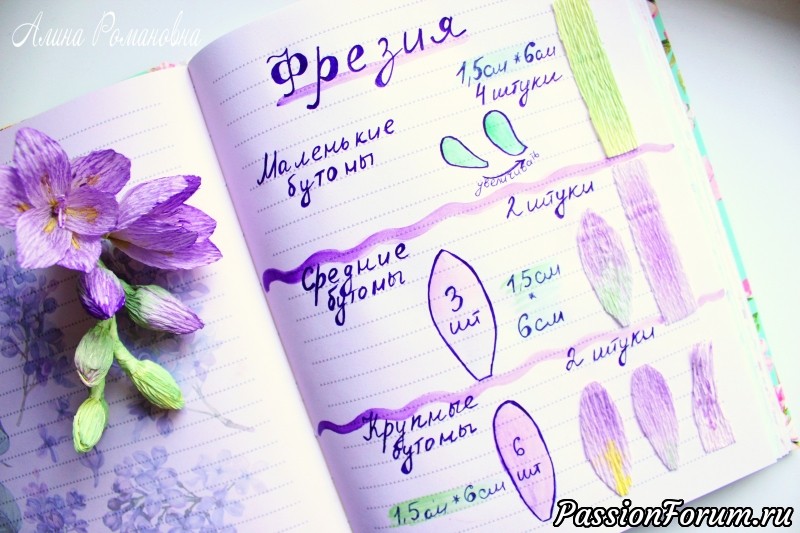 Алина Романовна
Фрезия
1,5см*6см
4 штуки
Маленькие
бутоны
увеличивать
2 штуки
Средние
бутоны
3
шт
1,5см
*
6см
2 штуки
Крупные
бутоны
6
шт
1,5см*6см
PassionForum.ru